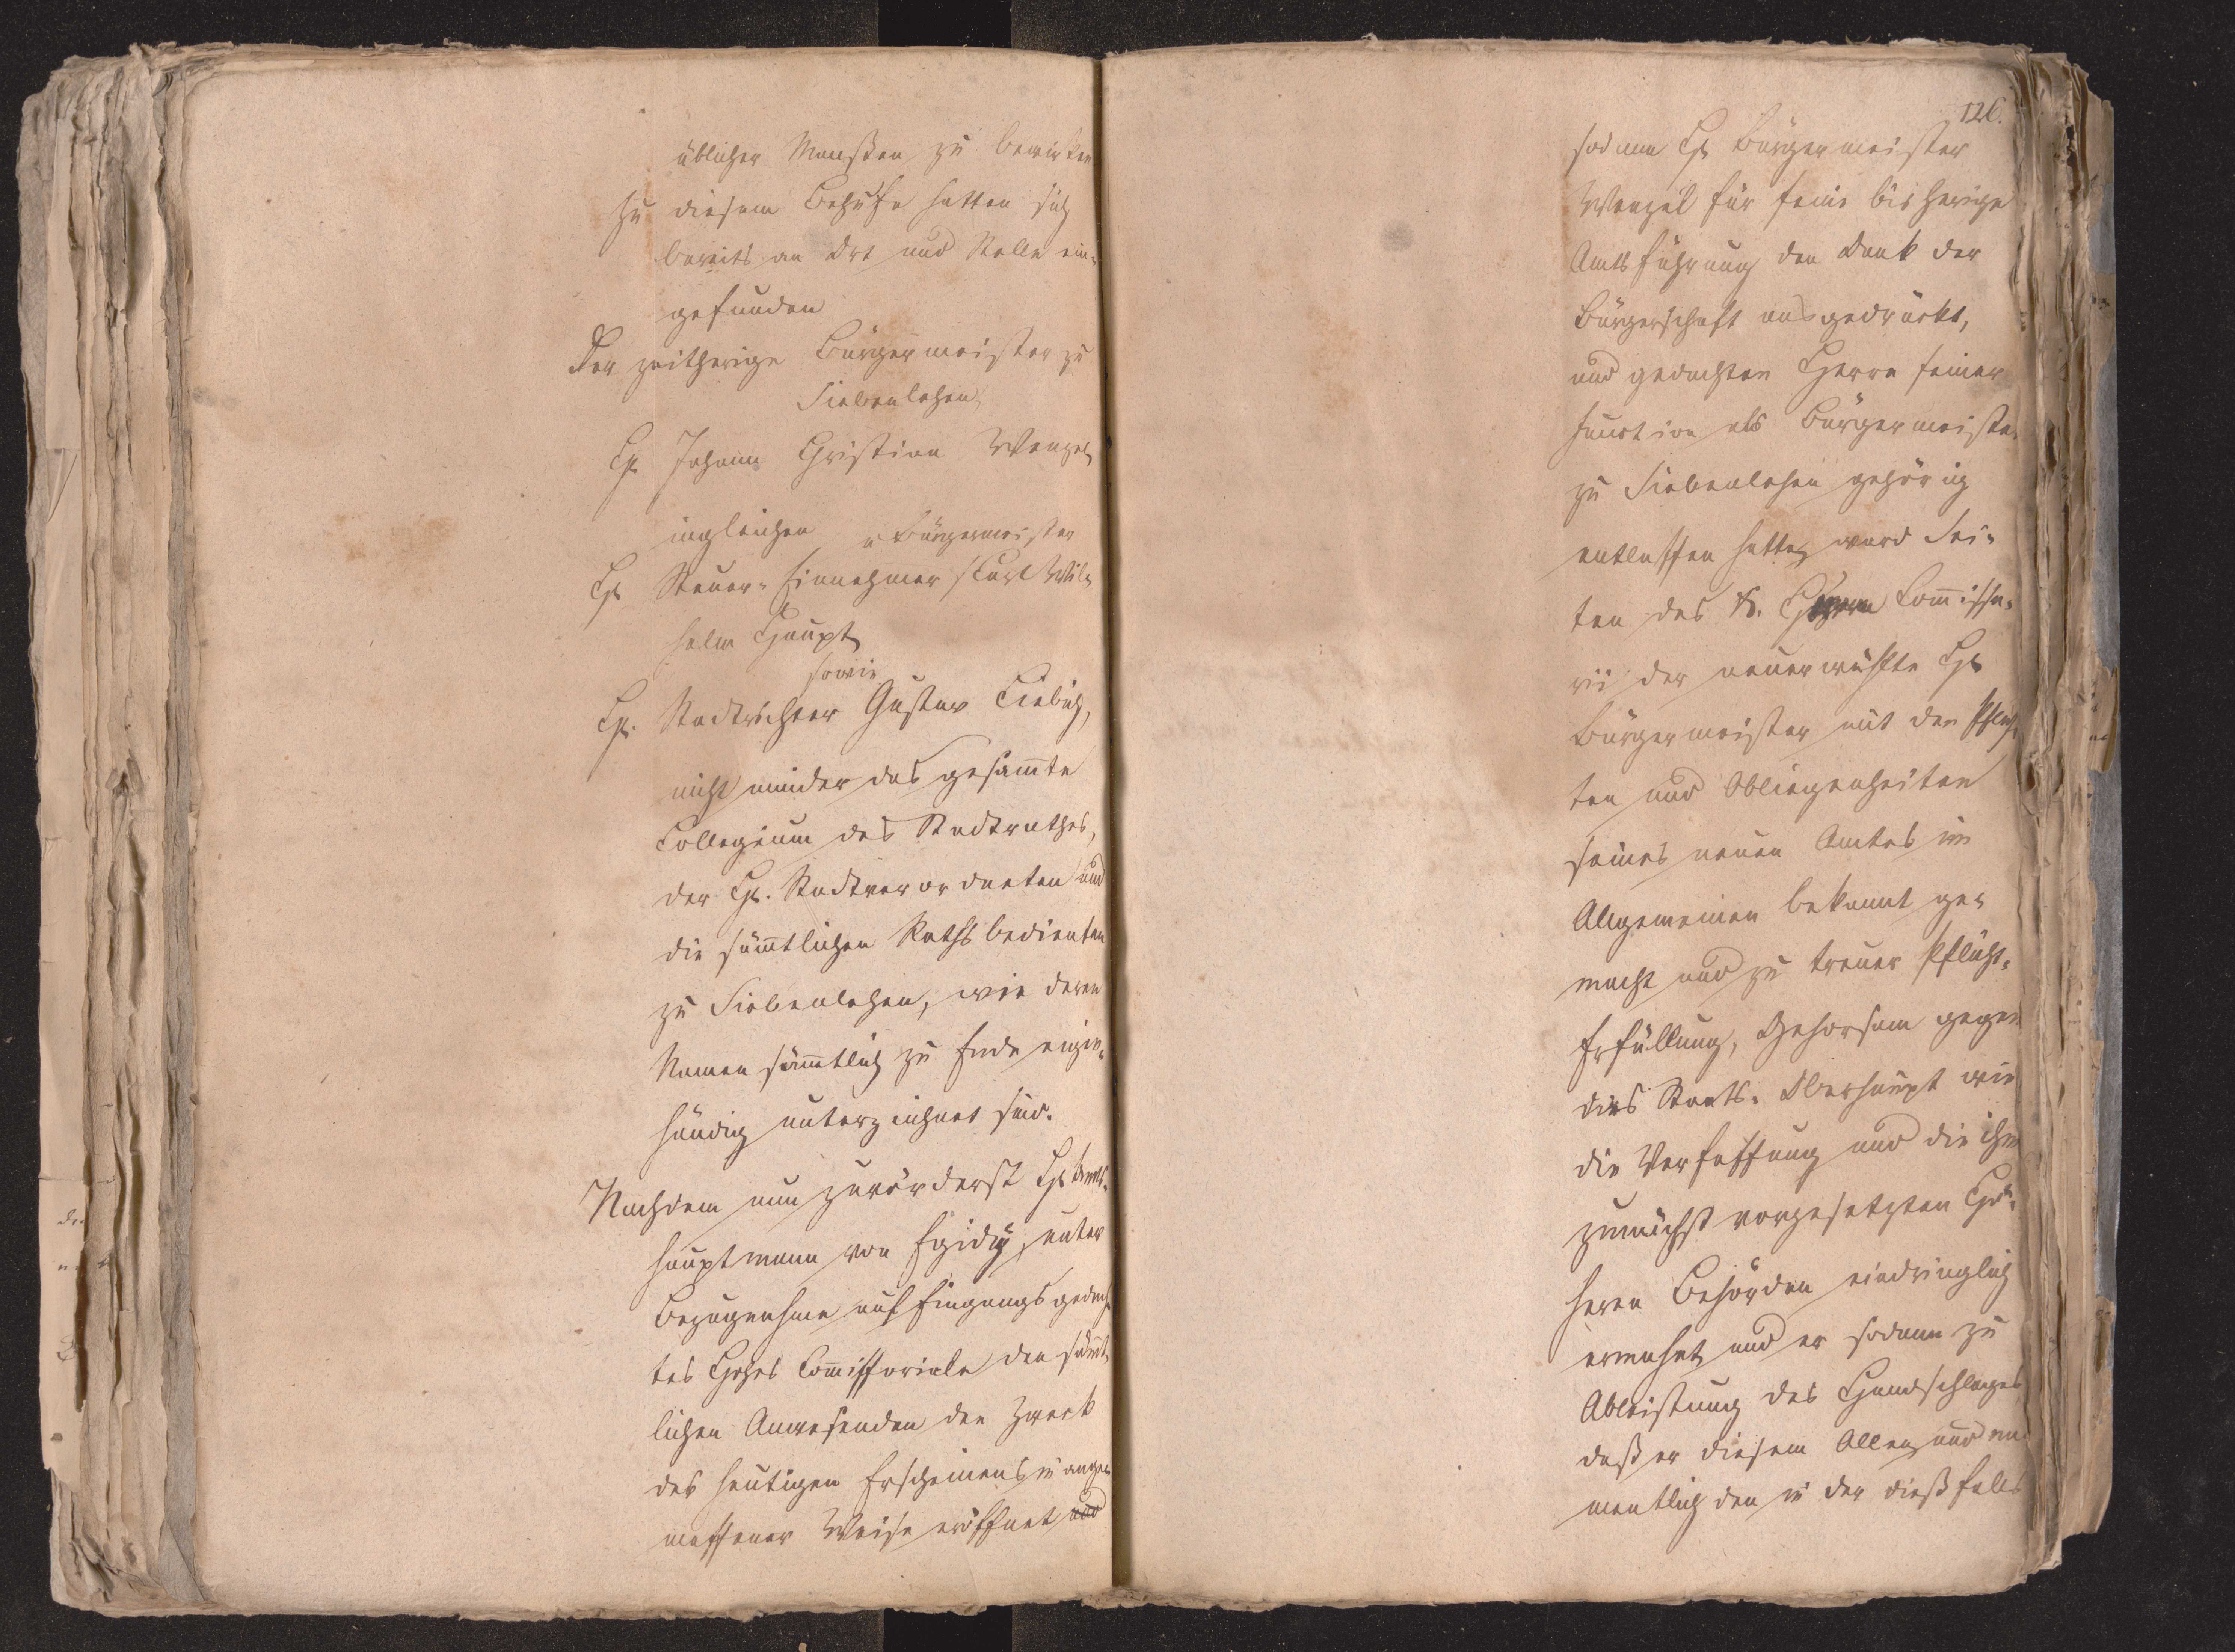 üblicher Maaßen zu bewirken
Zu diesem Behufe hatten sich
bereits an Ort und Stelle ein-
gefunden
Der zeitherige Bürgermeister zu
Siebenlehen
Hr. Johann Christian Wenzel
ingleichen
u Bürgermeister
Hr. Steuer-Einnehmer Carl Wil-
helm Haupt
sowie
Hr. Stadtrichter Gustav Liebich,
nicht minder das gesammte
Collegium des Stadtrathes,
der Hr. Stadtverordneten und
die sämmtlichen Rathsbedienten
zu Siebenlehen, wie deren
Namen sämmtlich zu Ende eigen-
händig unterzeichnet sind.
Nachdem nun zuvörderst Hr. Amts-
hauptmann von Egidy, unter
Bezugnahme auf Eingangs gedach-
tes Hohes Commissoriale den sämt-
lichen Anwesenden den Zweck
des heutigen Erscheinens in ange-
messener Weise eröffnet und
126.
sodann Hr. Bürgermeister
Wenzel für seine bisherige
Amtsführung den Dank der
Bürgerschaft ausgedrückt,
und gedachten Herrn seiner
Function als Bürgermeister
zu Siebenlehen gehörig
entlassen hatte, ward Sei-
ten des K. Herrn Commissa-
rii der neuerwählte Hr.
Bürgermeister mit den Pflich-
ten und Obliegenheiten
seines neuen Amtes im
Allgemeinen bekannt ge-
macht und zu treuer Pflicht-
Erfüllung, Gehorsam gegen
das Staats-Oberhaupt wie
die Verfassung und die ihm
zunächst vorgesetzten Hö-
heren Behörden eindringlich
ermahnt und er sodann zu
Ableistung des Handschlages
daß er diesem Allen und na-
mentlich den in der dießfalls